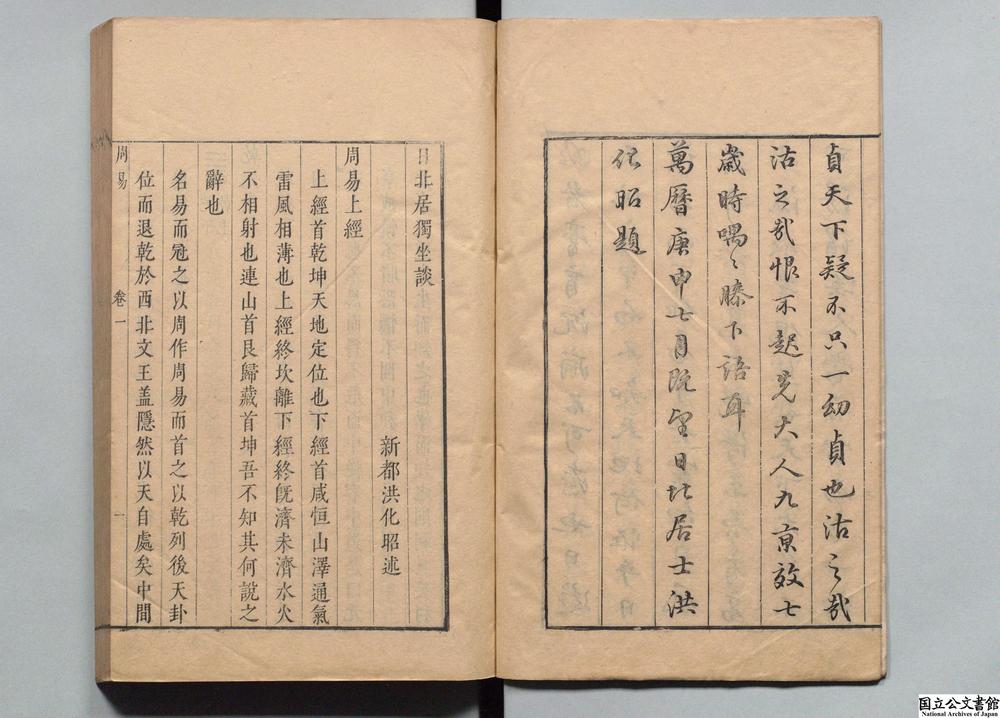 貞天下疑不只一幼貞也沽之哉
沽之哉恨不起先大人九京效七
歲時喁喁膝下語耳
萬曆庚申七月既望日北居士洪
化昭題
日北居獨坐談
新都洪化昭述
周易上經
上經首乾坤天地定位也下經首咸恒山澤通氣
雷風相薄也上經終坎離下經終旣濟未濟水火
不相射也連山首艮歸藏首坤吾不知其何說之
辭也
名易而冠之以周作周易而首之以乾列後天卦
位而退乾於西北文王盖隱然以天自處矣中間
周易
卷一
一
国立公文書館
National Archives of Japan